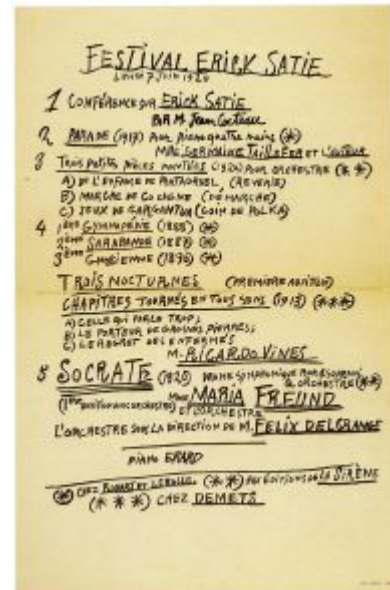 FESTIVAL ERICK SATIE
LUNDI 7 JUIN 1920
1 CONFÉRENCE SUR ERICK SATIE
PAR M. Jean Cocteau
2 PARADE (1917) POUR piano quatre mains (*)
MME GERMAINE TAILLEFER ET L'AUTEUR
3 TROIS PETITES PIÈCES MONTÉES (1920) POUR ORCHESTRE (* *)
A) DE L'ENFANCE DE PANTAGRUEL (REVERIE)
B) MARCHE DE COCAGNE (DÉMARCHE)
C) JEUX DE GARGANTUA (COIN DE POLKA)
4 1ÈRE GYMNOPÉDIE (1888) (*)
2ÈME SARABANDE (1887) (*)
3ÈME GNOSSIENNE (1890) (*)
TROIS NOCTURNES (PREMIÈRE AUDITION)
CHAPITRES TOURNÉS EN TOUS SENS (1913) (* * *)
A) CELLE QUI PARLE TROP;
B) LE PORTEUR DE GROSSES PIERRES;
C) LE REGRET DES ENFERMÉS
M. RICARDO VINES
5 SOCRATE (1920) DRAME SYMPHONIQUE POUR SOPRANO
& ORCHESTRE (* *)
(1ÈRE AUDITION AVEC ORCHESTRE) MME MARIA FREUND
ET L'ORCHESTRE
L'ORCHESTRE SOUS LA DIRECTION DE M. FELIX DELGRANGE
piano ERARD
(*) CHEZ ROUART ET LEROLLE. (* *) AUX ÉDITIONS DE LA SIRÈNE
(* * *) CHEZ DEMETS